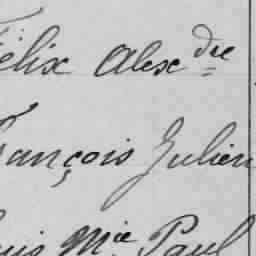 Félix Alexdre
François Julien
Louis Mie Paul